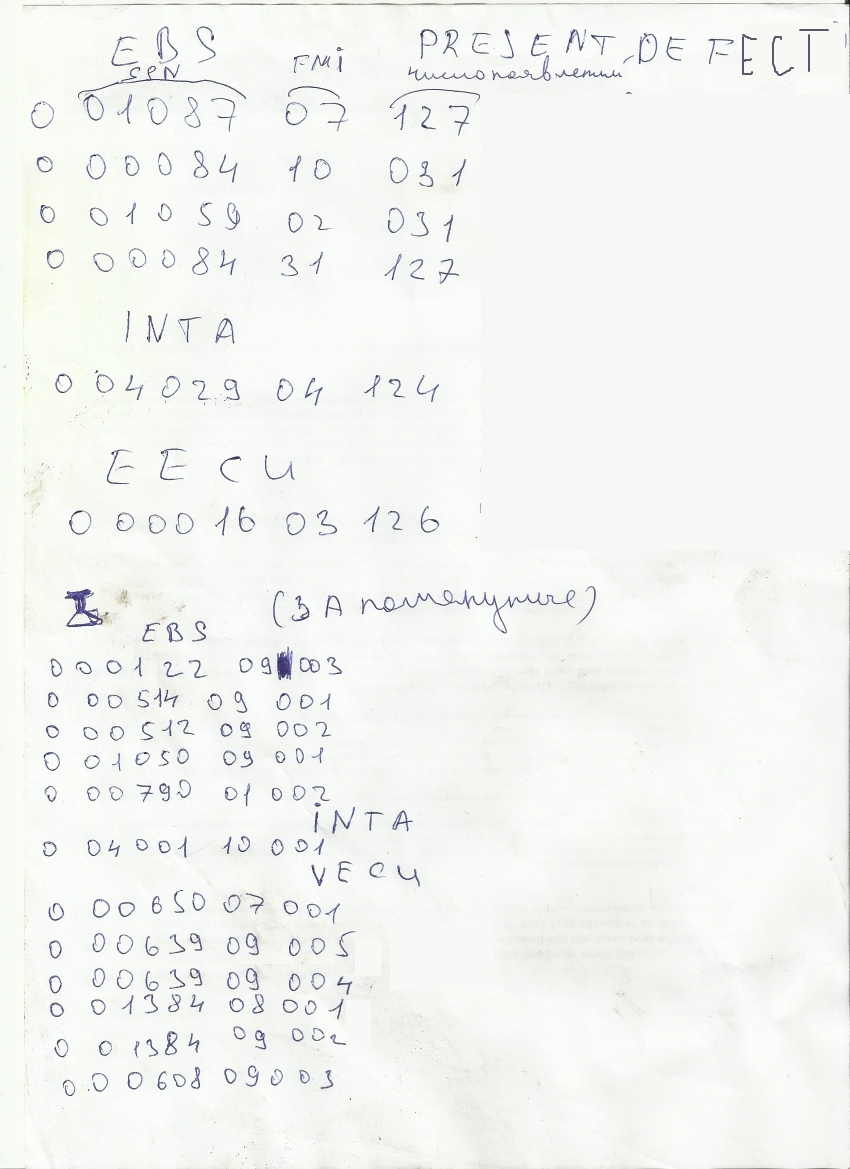 EBS FMi PRESENT DEFECT
SPN число появлении
0 01087 07 127
0 00084 10 031
0 01059 02 031
0 00084 31 127
INTA
0 04029 04 124
EECU
0 00016 03 126
(ЗА
EBS
0 00122 09 003
0 00514 09 001
0 00512 09 002
0 01050 09 001
0 00790 01 002
iNTA
0 04001 10 001
VECU
0 00650 07 001
0 00639 09 005
0 00639 09 004
0 01384 08 001
0 01384 09 002
0 00608 09 003